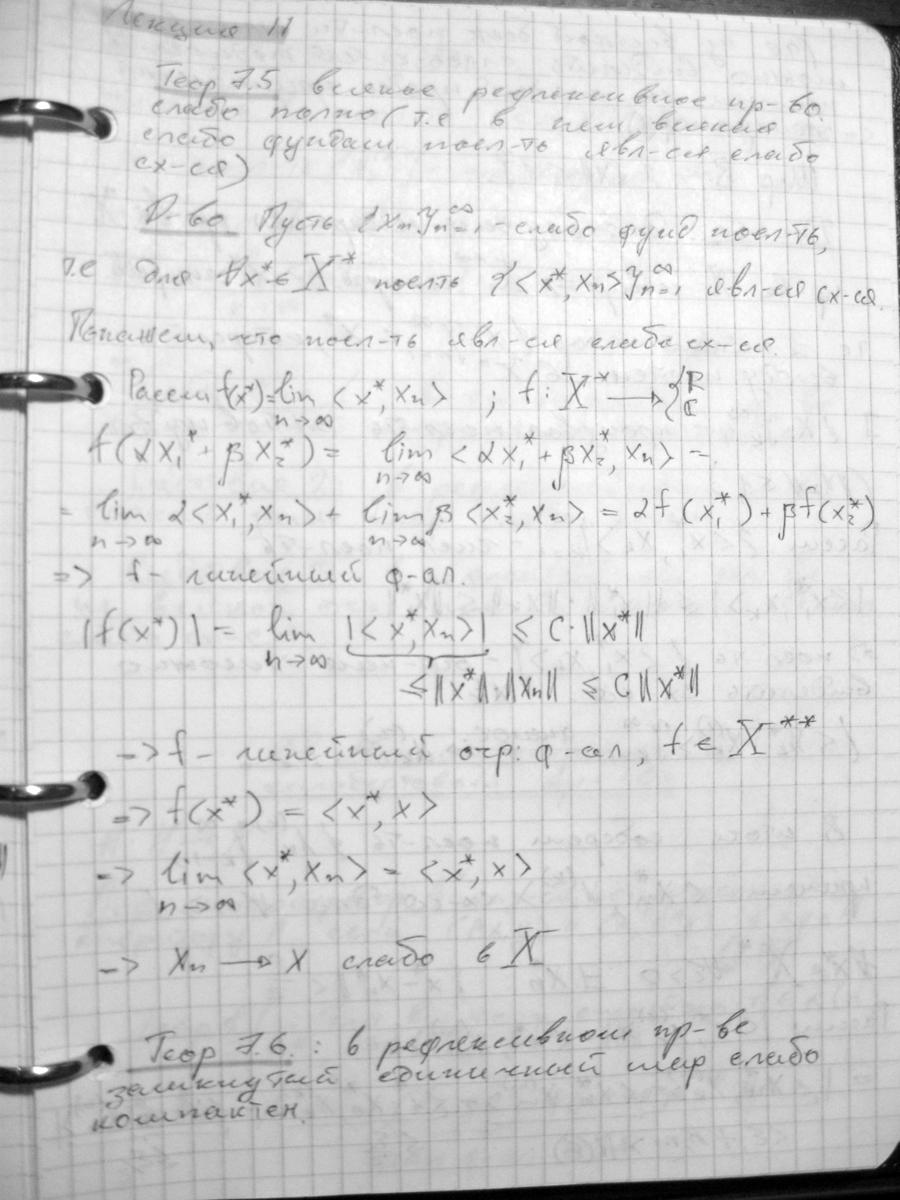 Лекция 11
Теор 7.5 всякое рефлексивное пр-во
слабо полно (т.е в нем всякая
слабо фундам посл-ть явл-ся слабо
сх-ся)
Д-во Пусть {xₙ}ₙ₌₁^∞ - слабо фунд посл-ть,
т.е для ∀x* ∈ X* посл-ть {<x*, xₙ>}ₙ₌₁^∞ явл-ся сх-ся.
Покажем, что посл-ть явл-ся слабо сх-ся.
Рассм f(x*) = lim_{n→∞} <x*, xₙ> ; f: X* → {R C
f(αx₁* + βx₂*) = lim_{n→∞} <αx₁* + βx₂*, xₙ> =
= lim_{n→∞} α<x₁*, xₙ> + lim_{n→∞} β<x₂*, xₙ> = αf(x₁*) + βf(x₂*)
=> f - линейный ф-ал.
|f(x*)| = lim_{n→∞} |<x*, xₙ>| ≤ C·||x*||
≤ ||x*|| ||xₙ|| ≤ C||x*||
=> f - линейный огр. ф-ал, f ∈ X**
=> f(x*) = <x*, x>
=> lim_{n→∞} <x*, xₙ> = <x*, x>
=> xₙ → x слабо в X
Теор 7.6. : в рефлексивном пр-ве
замкнутый единичный шар слабо
компактен.